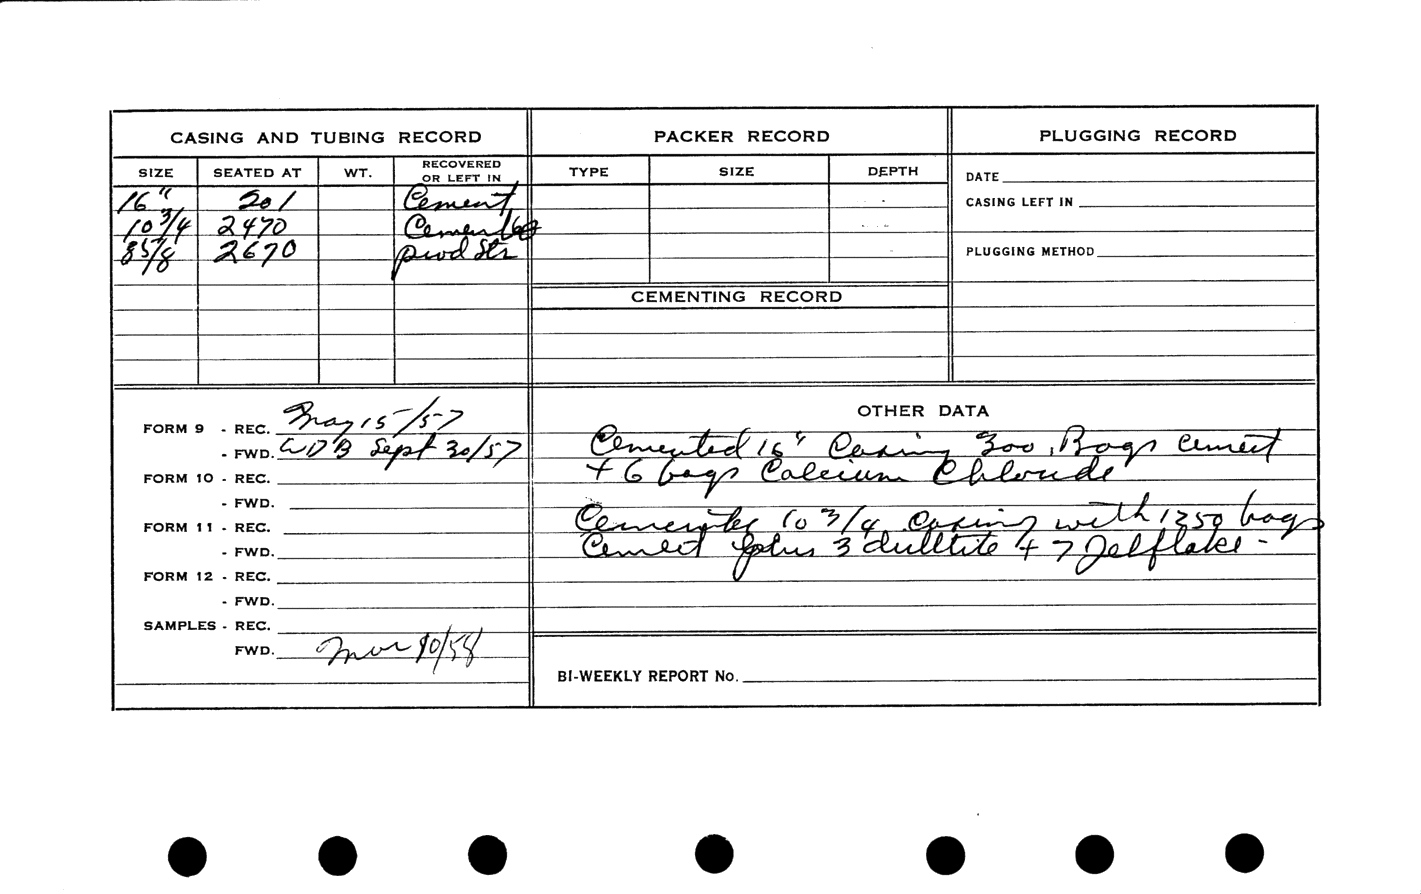 CASING AND TUBING RECORD
SIZE SEATED AT WT. RECOVERED OR LEFT IN
16" 201 Cement
10 3/4 2470 Cemented
8 5/8 2670 prod Str
PACKER RECORD
TYPE SIZE DEPTH
CEMENTING RECORD
PLUGGING RECORD
DATE
CASING LEFT IN
PLUGGING METHOD
FORM 9 - REC. May 15/57
- FWD. WDB Sept 30/57
FORM 10 - REC.
- FWD.
FORM 11 - REC.
- FWD.
FORM 12 - REC.
- FWD.
SAMPLES - REC.
FWD. Mar 10/58
OTHER DATA
Cemented 16" Casing 300 Bags cement
+ 6 bags Calcium Chloride
Cemented 10 3/4 casing with 1250 bags
Cement plus 3 + 7 Jelflake -
BI-WEEKLY REPORT No.